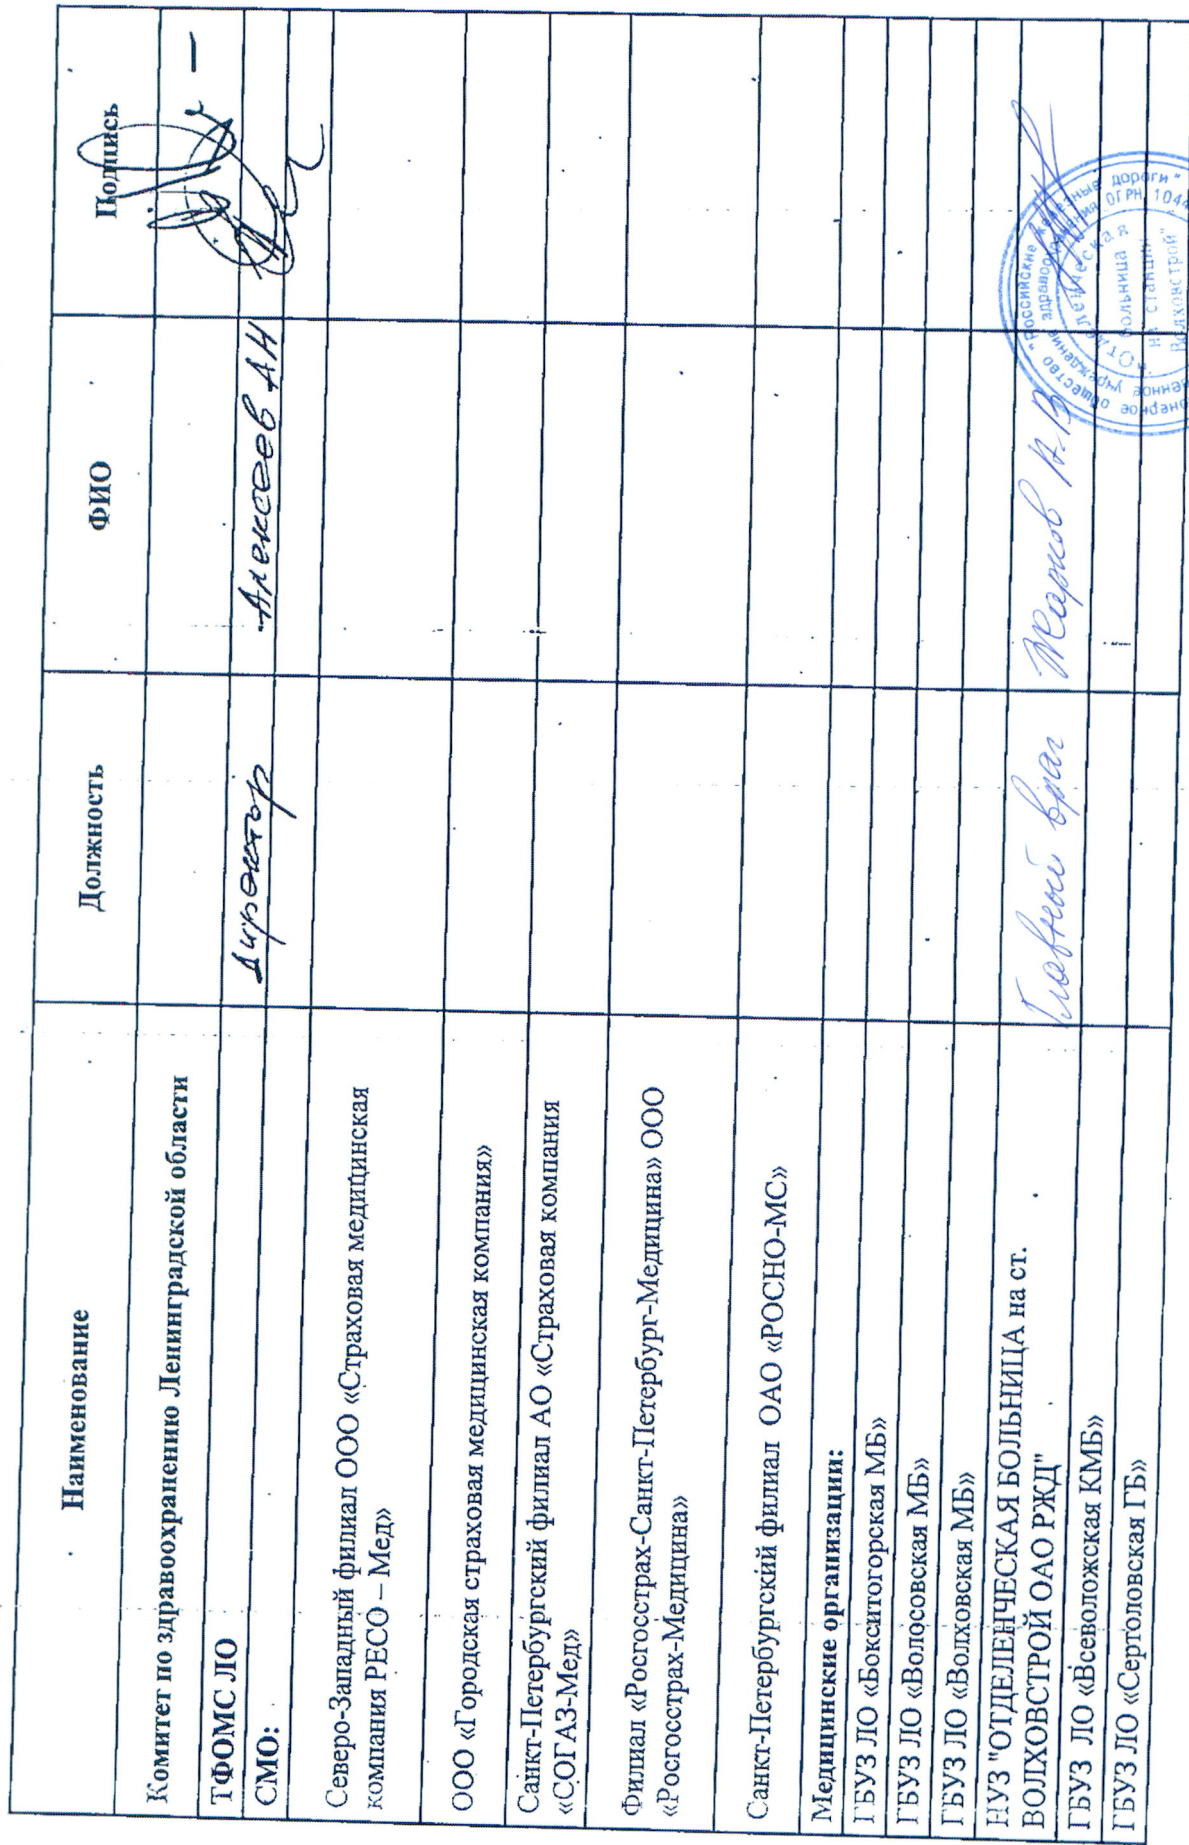 Наименование Должность ФИО Подпись
Комитет по здравоохранению Ленинградской области
ТФОМС ЛО Директор Алексеев АН
СМО:
Северо-Западный филиал ООО «Страховая медицинская
компания РЕСО – Мед»
ООО «Городская страховая медицинская компания»
Санкт-Петербургский филиал АО «Страховая компания
«СОГАЗ-Мед»
Филиал «Росгосстрах-Санкт-Петербург-Медицина» ООО
«Росгосстрах-Медицина»
Санкт-Петербургский филиал ОАО «РОСНО-МС»
Медицинские организации:
ГБУЗ ЛО «Бокситогорская МБ»
ГБУЗ ЛО «Волосовская МБ»
ГБУЗ ЛО «Волховская МБ»
НУЗ "ОТДЕЛЕНЧЕСКАЯ БОЛЬНИЦА на ст.
ВОЛХОВСТРОЙ ОАО РЖД" Главный врач Жарков А.В
общество "Российские железные дороги"
учреждение здравоохранения ОГРН 104
"Отделенческая
больница
на станции
Волховстрой"
ГБУЗ ЛО «Всеволожская КМБ»
ГБУЗ ЛО «Сертоловская ГБ»